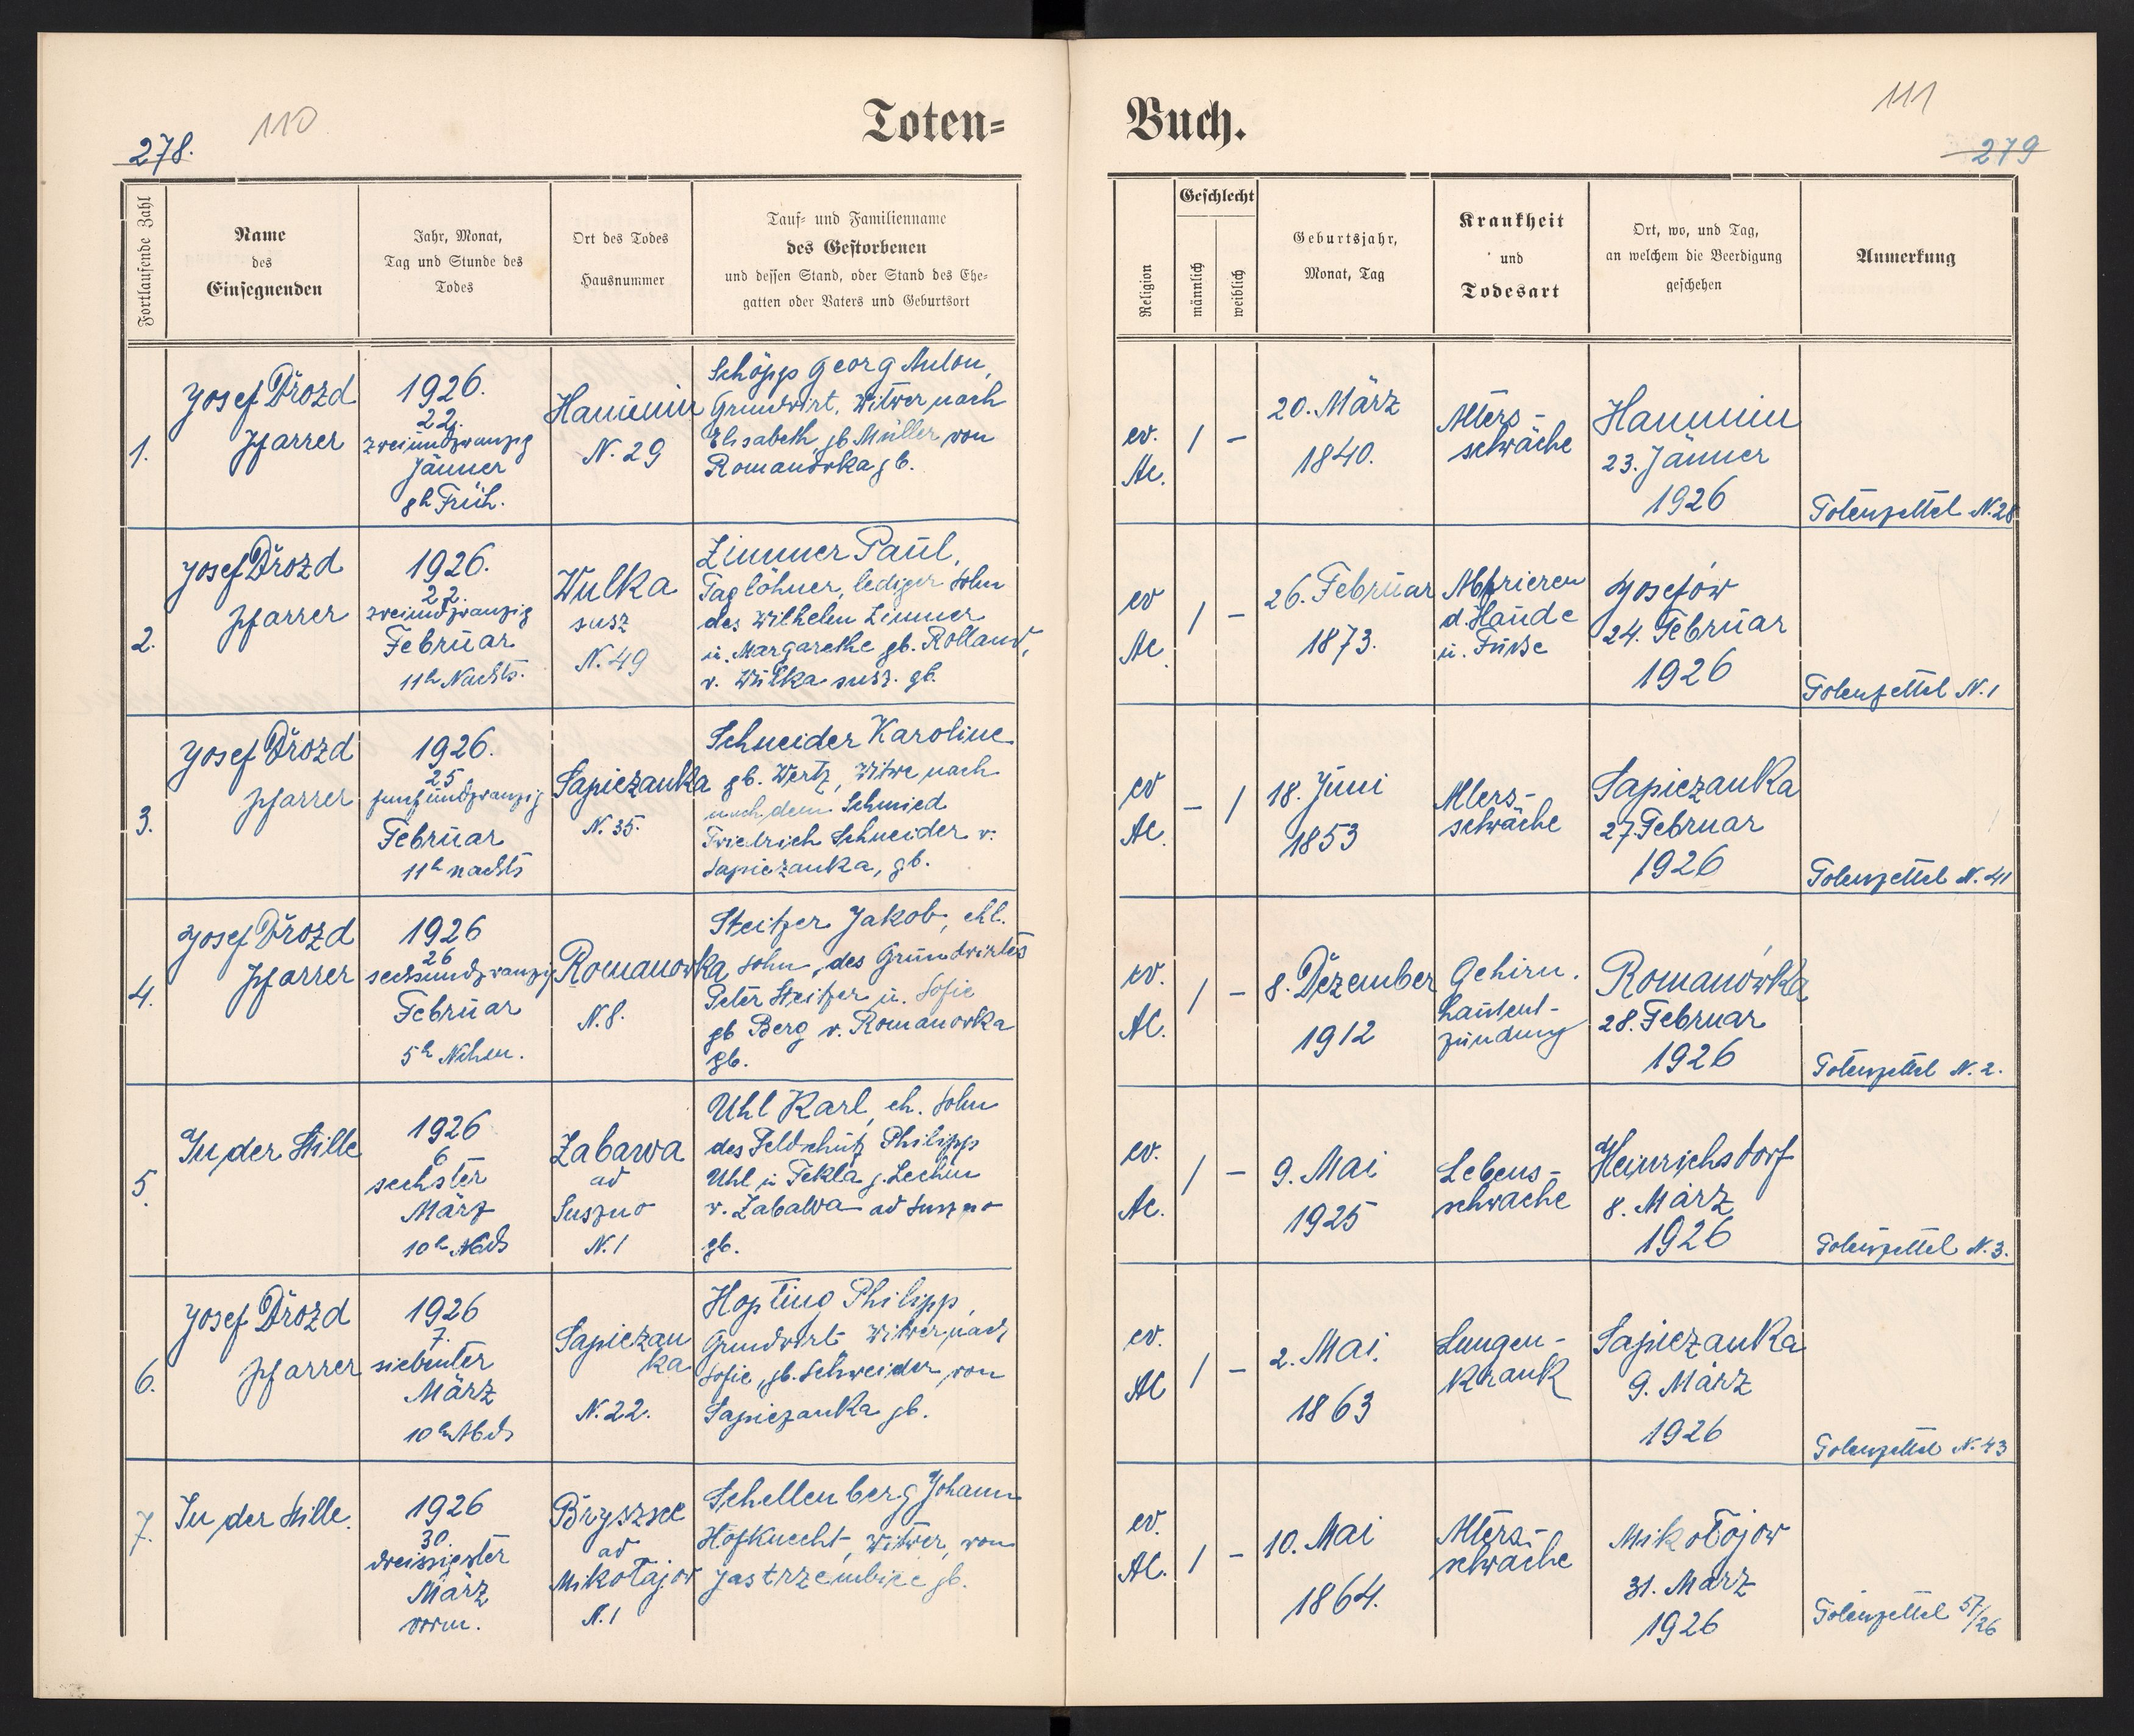 110
278.
Toten=
Fortlaufende Zahl
Name
des
Einsegnenden
Jahr, Monat,
Tag und Stunde des
Todes
Ort des Todes
Hausnummer
Tauf= und Familienname
des Gestorbenen
und dessen Stand, oder Stand des Ehe=
gatten oder Vaters und Geburtsort
1.
Josef Drozd
Pfarrer
1926.
22.
zweiundzwanzig
Jänner
8h Früh.
Hanunin
N. 29
Schöpp Georg Anton,
Grundwirt, Witwer nach
Elisabeth gb Müller von
Romanówka gb.
2.
Josef Drozd
Pfarrer
1926.
22.
zweiundzwanzig
Februar
11h Nachts.
Wulka
susz
N. 49
Zimmer Paul,
Taglöhner, lediger Sohn
des Wilhelm Zimmer
u. Margarethe gb. Rolland,
v. Wulka susz. gb.
3.
Josef Drozd
Pfarrer
1926.
25
fünfundzwanzig
Februar
11h nachts
Sapiezanka
N. 35.
Schneider Karoline
gb. Wertz, Witwe nach
nach dem Schmied
Friedrich Schneider v.
Sapiezanka, gb.
4.
Josef Drozd
Pfarrer
1926
26
sechsundzwanzig
Februar
5h Nchm.
Romanowka
N. 8.
Steitzer Jakob, ehl.
Sohn, des Grundwirtes
Peter Steitzer u. Sofie
gb Berg v. Romanowka
gb.
5.
In der Stille
1926
6
sechster
März
10h Abds
Zabawa
ad
Suszno
N. 1
Uhl Karl, eh. Sohn
des Feldschütz Philipp
Uhl u Tekla g.
v. Zabawa ad Suszno
gb.
6.
Josef Drozd
Pfarrer
1926
7.
siebenter
März
10h Abds
Sapiezan
ka
N. 22.
Hopting Philipp,
Grundwirt Witwer nach
Sofie, gb. Schneider von
Sapiezanka gb.
7.
In der Stille.
1926
30.
dreissigster
März
vorm.
ad
Mikołajow
N. 1
Schellenberg Johann
Hofknecht, Witwer, von
Jastrzembice gb.
111
279
Buch.
Religion
Geschlecht
männlich
weiblich
Geburtsjahr,
Monat, Tag
Krankheit
und
Todesart
Ort, wo, und Tag,
an welchem die Beerdigung
geschehen
Anmerkung
ev.
AC.
/ –
20. März
1840.
Alters-
schwäche
Hanunin
23. Jänner
1926
Totenzettel N. 28
ev
AC
/ –
26. Februar
1873.
Abfrieren
d. Hände
u. Füße
Josefów
24. Februar
1926
Totenzettel N. 1
ev
AC.
– /
18. Juni
1853
Alters-
schwäche
Sapiezanka
27. Februar
1926
Totenzettel N. 41
ev.
AC.
/ –
8. Dezember
1912
Gehirn.
hautent-
zündung
Romanówka
28. Februar
1926
Totenzettel N. 2.
ev.
AC.
/ –
9. Mai
1925
Lebens-
schwäche
Heinrichsdorf
8. März
1926
Totenzettel N. 3.
ev.
AC
/ –
2. Mai.
1863
Lungen-
krank
Sapiezanka
9. März
1926
Totenzettel N. 43
ev.
AC.
/ –
10. Mai
1864.
Alters-
schwäche
Mikołojow
31. März
1926
Totenzettel 57/26